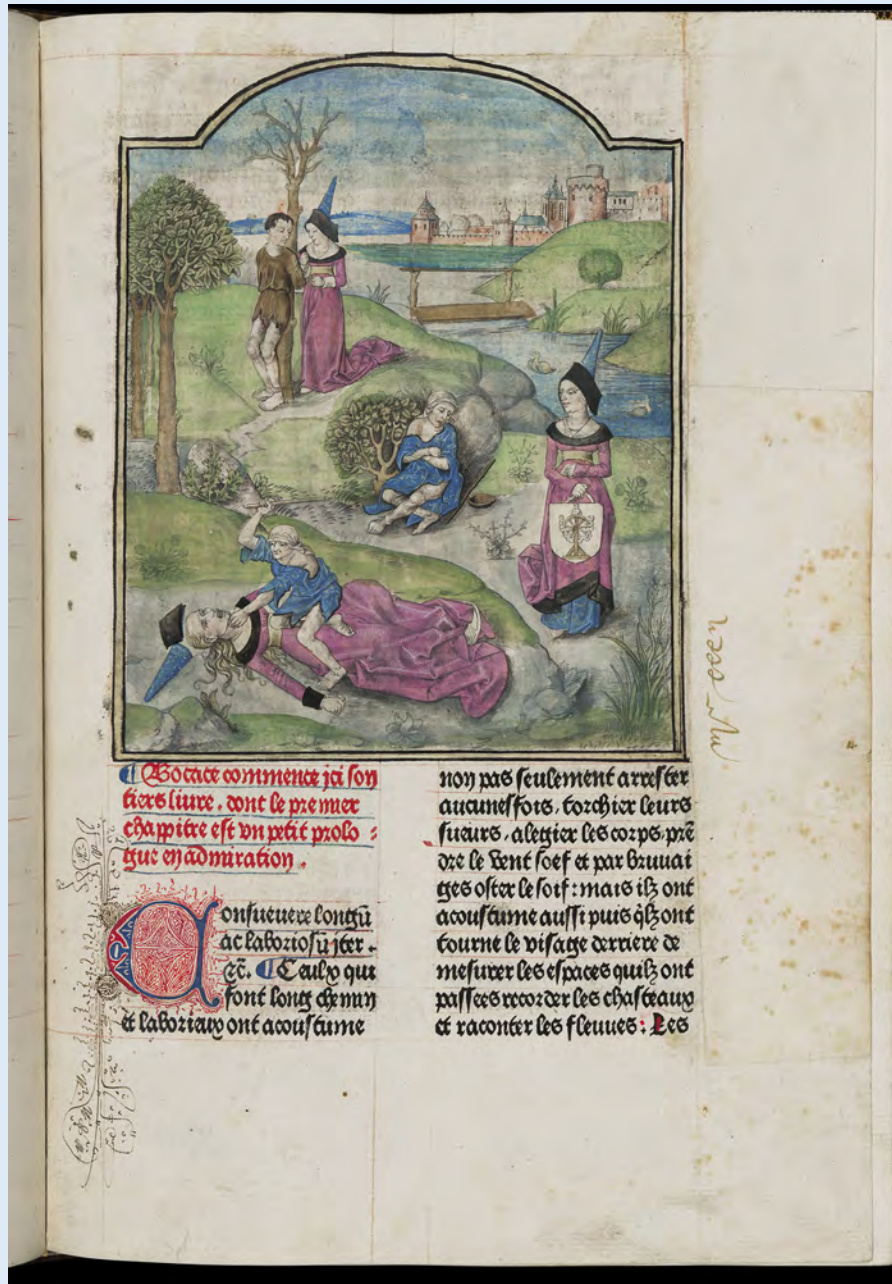 Bocace commence ici son
tiers liure. dont le premier
chappitre est vn petit prolo⸗
gue en admiration.
Consueuere longū
ac laboriosū iter.
⁊c̃. Ceulx qui
font long chemin
et laborieux ont acoustume
non pas seulement arrester
aucunesfois. torchier leurs
sueurs. alegier les corps. prē
dre le vent soef et par bruuai
ges oster le soif: mais ilz ont
acoustume aussi puis q̄lz ont
tourne le visage derriere de
mesurer les espaces quilz ont
passees recorder les chasteaux
et raconter les fleuues: Les